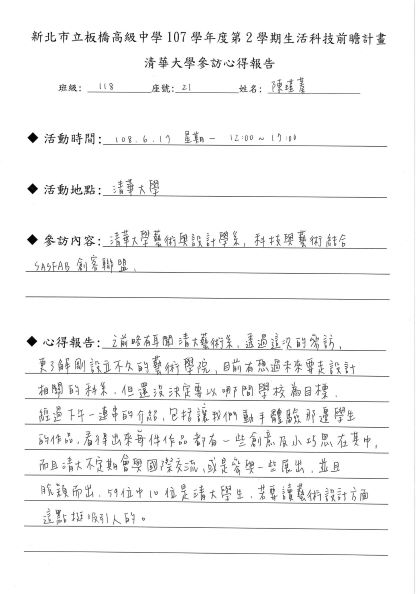 新北市立板橋高級中學 107 學年度第 2 學期生活科技前瞻計畫
清華大學參訪心得報告
班級: 118 座號: 21 姓名: 陳
◆ 活動時間: 108.6.17 星期一 12:00~17:00
◆ 活動地點: 清華大學
◆ 參訪內容: 清華大學藝術與設計學系, 科技與藝術結合
創客聯盟.
◆ 心得報告: 之前略有耳聞清大藝術系, 透過這次的參訪,
更了解剛設立不久的藝術學院, 目前有想過未來要走設計
相關的科系, 但還沒決定要以哪間學校為目標.
經過下午一連串的介紹, 包括讓我們動手體驗那邊學生
的作品, 看得出來每件作品都有一些創意及小巧思在其中,
而且清大不定期會與國際交流, 或是參與一些展出, 並且
脫穎而出, 59位中10位是清大學生, 若要讀藝術設計方面
這點挺吸引人的。